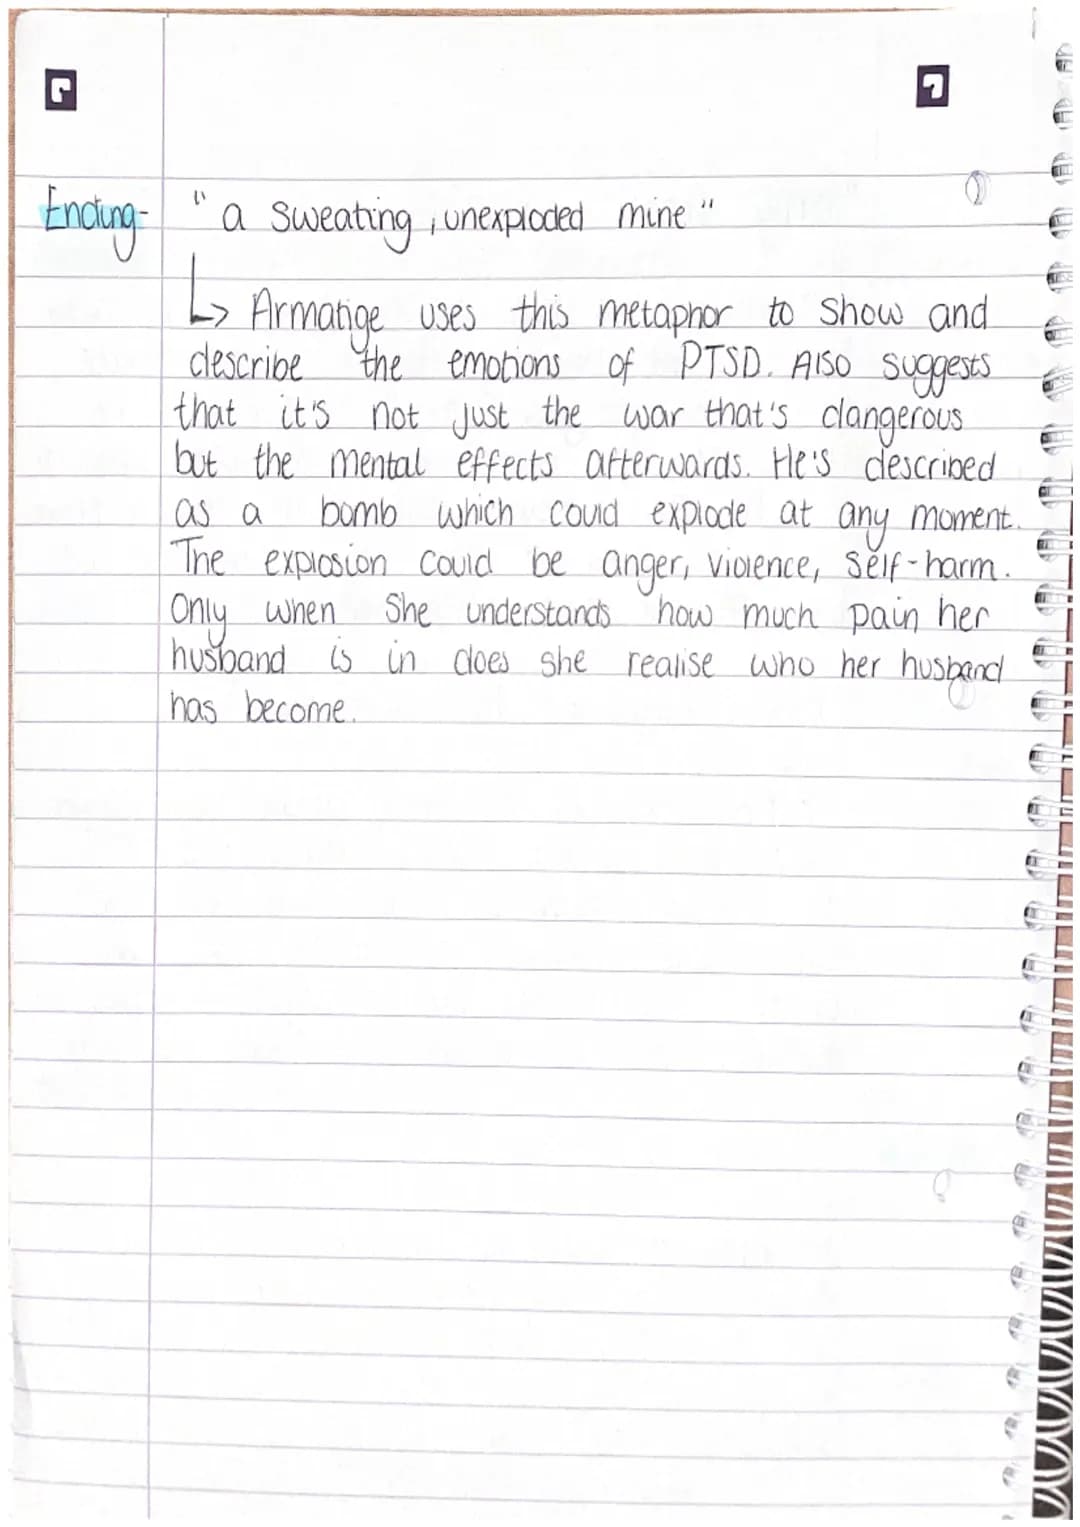 Ending- " a sweating, unexploded mine "
↳ Armatige uses this metaphor to show and
describe the emotions of PTSD. Also suggests
that it's not just the war that's dangerous
but the mental effects afterwards. He's described
as a bomb which could explode at any moment.
The explosion could be anger, violence, self-harm.
Only when she understands how much pain her
husband is in does she realise who her husband
has become.